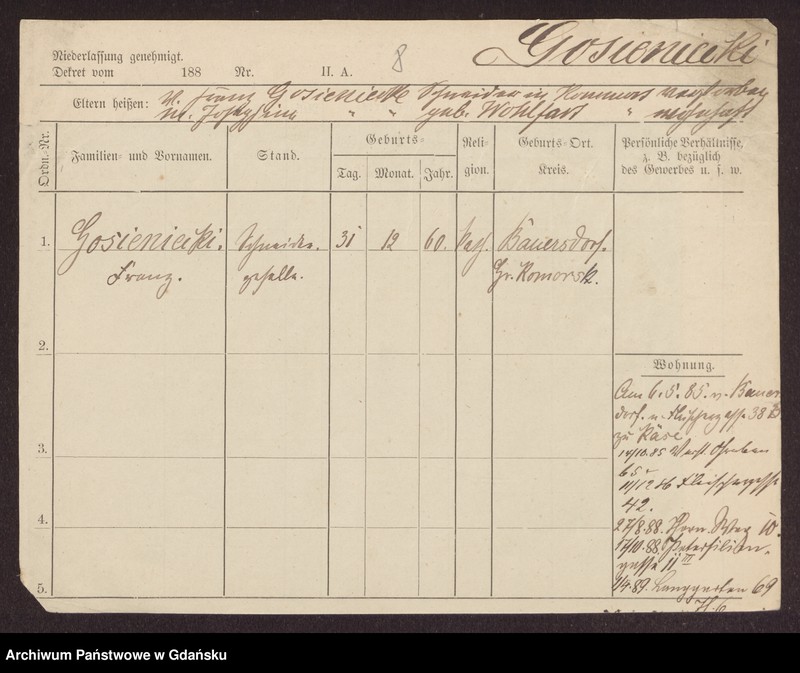 Gosieniecki
Niederlassung genehmigt.
Dekret vom 188 Nr. II. A. 8
Eltern heißen: V. Franz Gosieniecki Schneider in Kommorsk verstorben
M. Josephine " " geb. Wohlfart "
Ordn.-Nr.
Familien- und Vornamen.
Stand.
Geburts-
Tag. Monat. Jahr.
Religion.
Geburts-Ort.
Kreis.
Persönliche Verhältnisse,
z. B. bezüglich
des Gewerbes u. s. w.
1. Gosieniecki. Schneider- 31 12 60. kath. Bauersdorf.
Franz. geselle. Gr. Komorsk.
2.
Wohnung.
Am 6.5.85. v. Bauers
dorf. n. Fleischergasse 38 b
zu Käse
3.
14/10.85 Vorst. Graben
65
11/12 86 Fleischergasse
42.
4.
27/8.88. Weg 10.
17/10.88. Petersilien-
gasse 11 III
5.
1/4.89. Langgarten 69
Archiwum Państwowe w Gdańsku